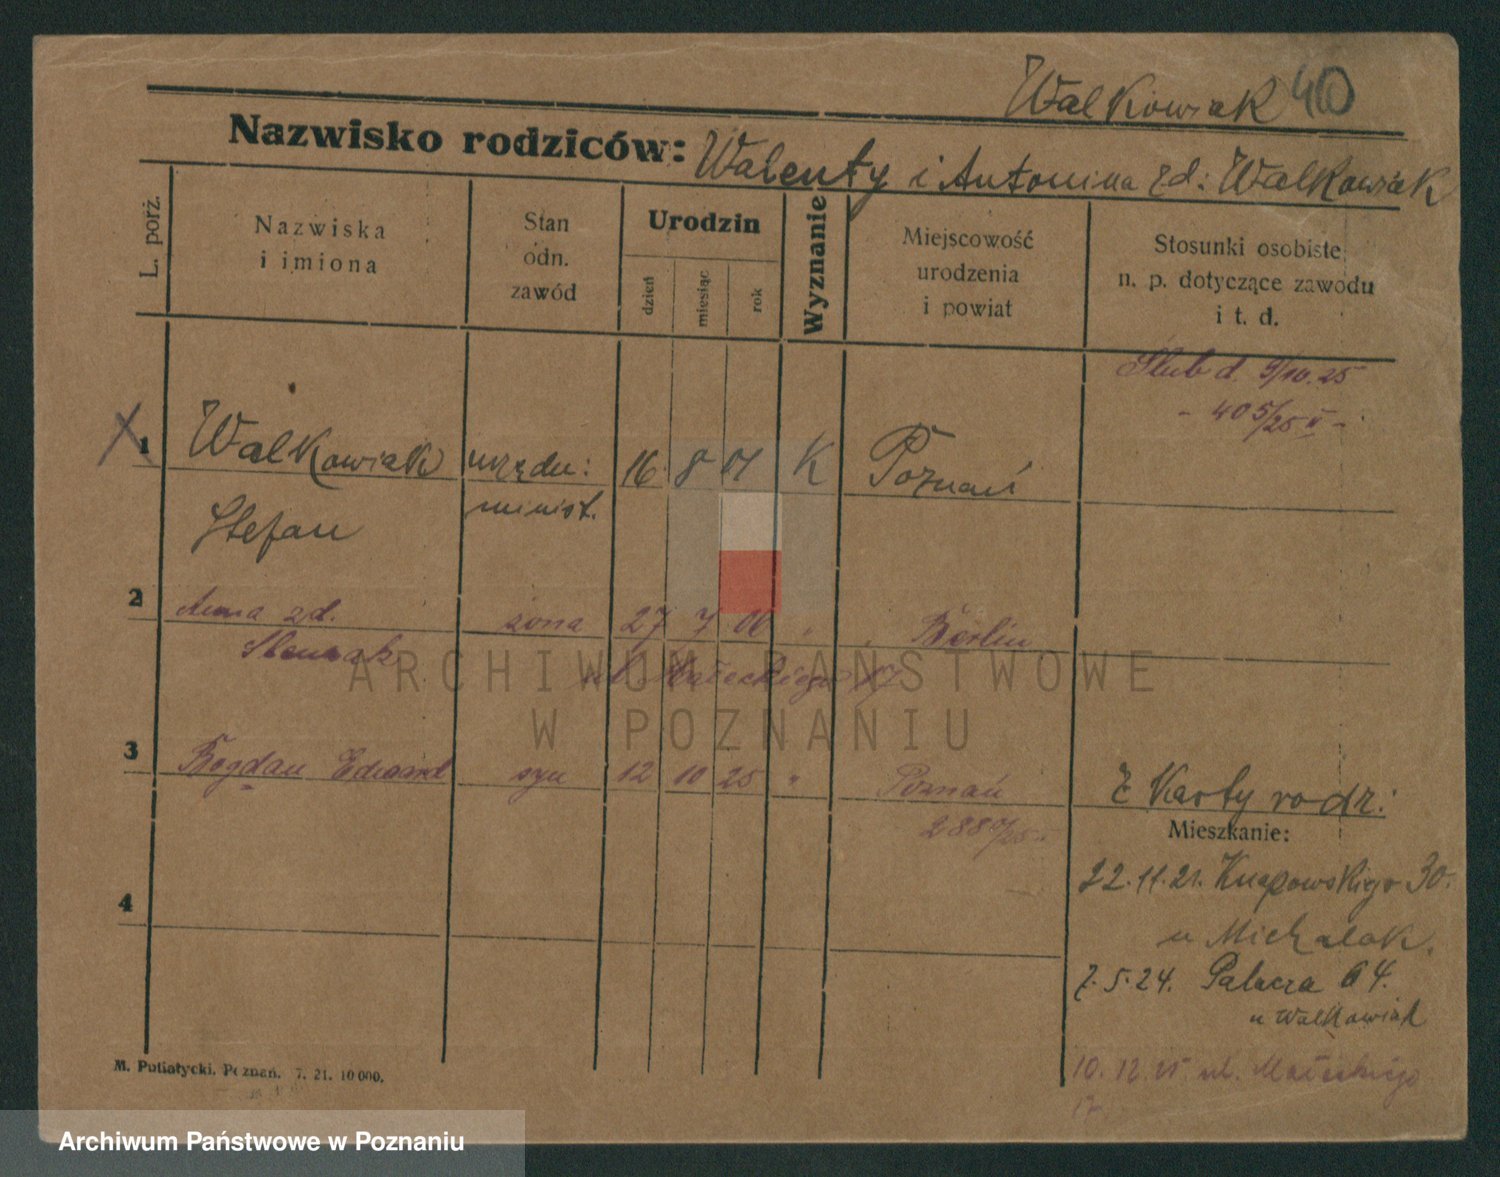 Walkowiak 40
Nazwisko rodziców: Walenty i Antonina zd: Walkowiak
L. porz.
Nazwiska
i imiona
Stan
odn.
zawód
Urodzin
dzień
miesiąc
rok
Wyznanie
Miejscowość
urodzenia
i powiat
Stosunki osobiste
n. p. dotyczące zawodu
i t. d.
Ślub d. 9/10.25
- 405/25 II -
1 Walkowiak urzędn: 16 8 01 K Poznań
Stefan minist.
2 Anna zd. żona 27 7 00 Berlin
ul. Małeckiego 17
3 Bogdan Edward syn 12 10 25 " Poznań
Z Karty rodz:
Mieszkanie:
22.11.21. Knapowskiego 30.
u Michalak.
4
7.5.24. Palacza 64.
u Walkowiak
10.12.25 ul. Małeckiego
17
M. Putiatycki, Poznań. 7. 21. 10 000.
ARCHIWUM PAŃSTWOWE
W POZNANIU
Archiwum Państwowe w Poznaniu